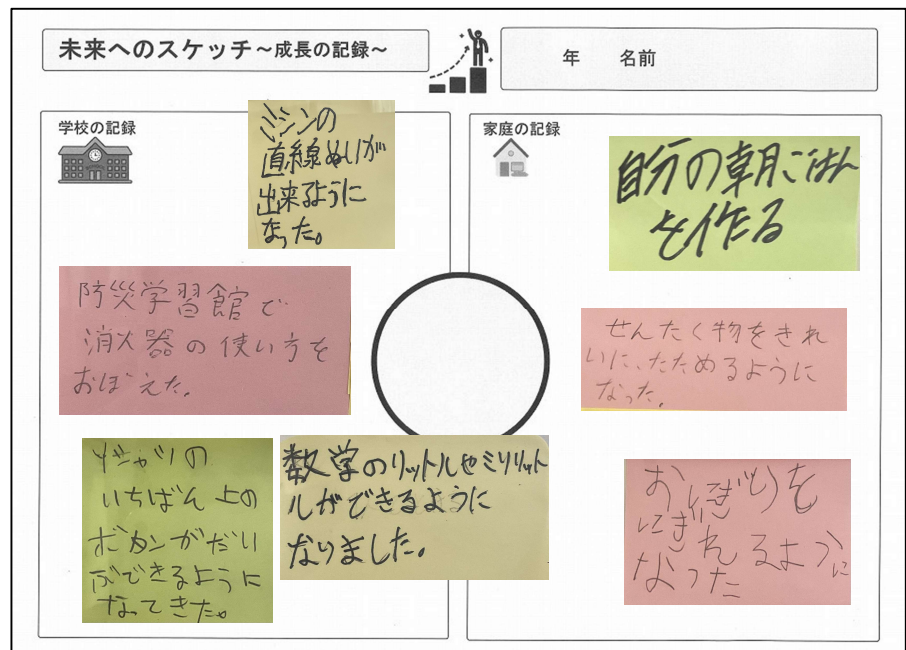 未来へのスケッチ~成長の記録~
年 名前
学校の記録
ミシンの
直線ぬいが
出来るように
なった。
防災学習館で
消火器の使い方を
おぼえた。
Yシャツの
いちばん上の
ボタンがだい
ぶできるように
なってきた。
数学のリットルやミリリット
ルができるように
なりました。
家庭の記録
自分の朝ごはん
を作る
せんたく物をきれ
いに、たためるように
なった。
おにぎりを
にぎれるように
なった